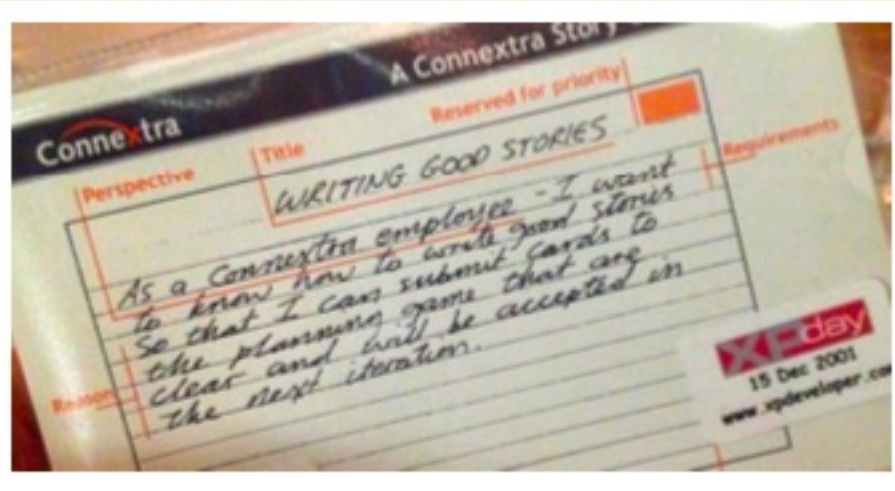 A Connextra Story
Connextra
Reserved for priority
Perspective
Title
WRITING GOOD STORIES
Requirements
As a Connextra employee - I want
to know how to write good stories
so that I can submit cards to
the planning game that are
clear and will be accepted in
the next iteration.
Reason
XPday
15 Dec 2001
www.xpdeveloper.co